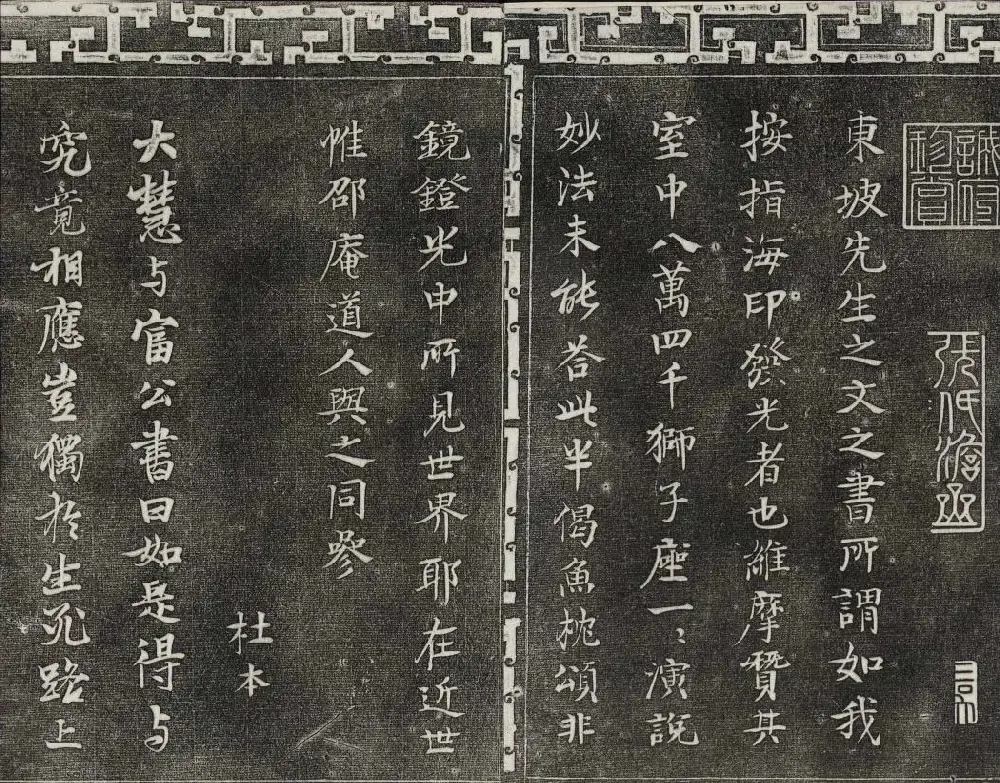 東坡先生之文之書所謂如我
按指海印發光者也維摩其
室中八萬四千獅子座一〻演說
妙法未能荅此半偈魚枕頌非
鏡鐙光中所見世界耶在近世
惟邵庵道人與之同參
杜本
大慧与富公書曰如是得与
究竟相應豈獨於生死路上